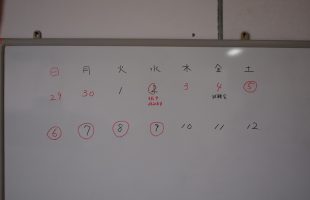 日 月 火 水 木 金 土
29 30 1 2 3 4 5
6 7 8 9 10 11 12